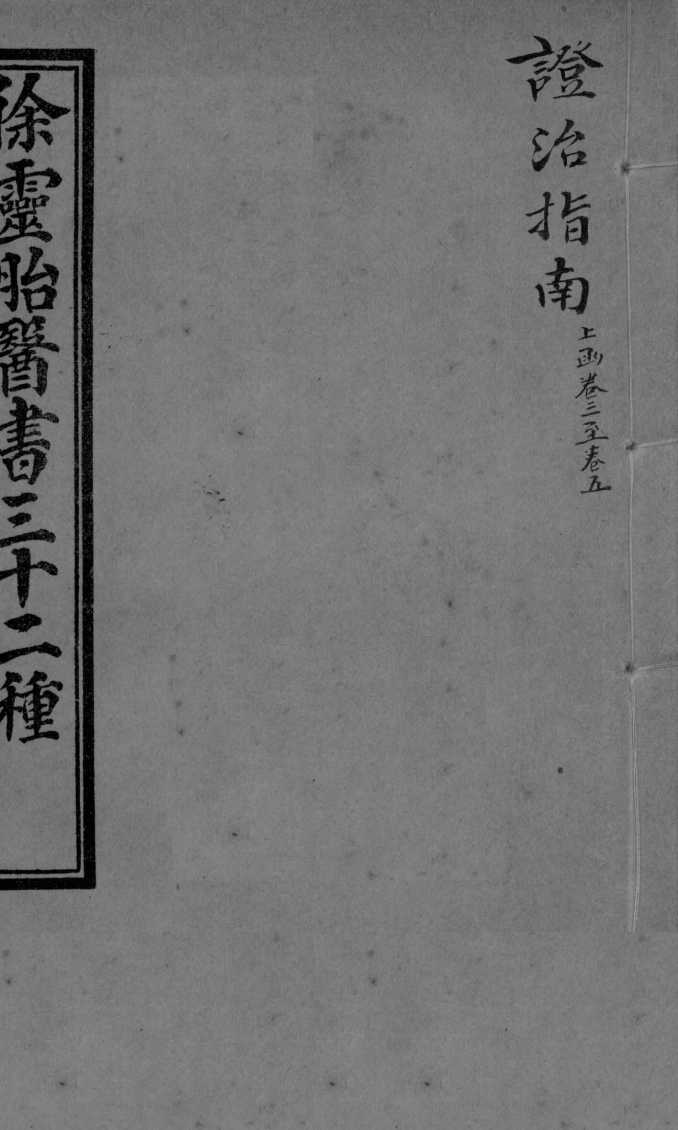 證治指南
上函卷三至卷五
徐靈胎醫書三十二種